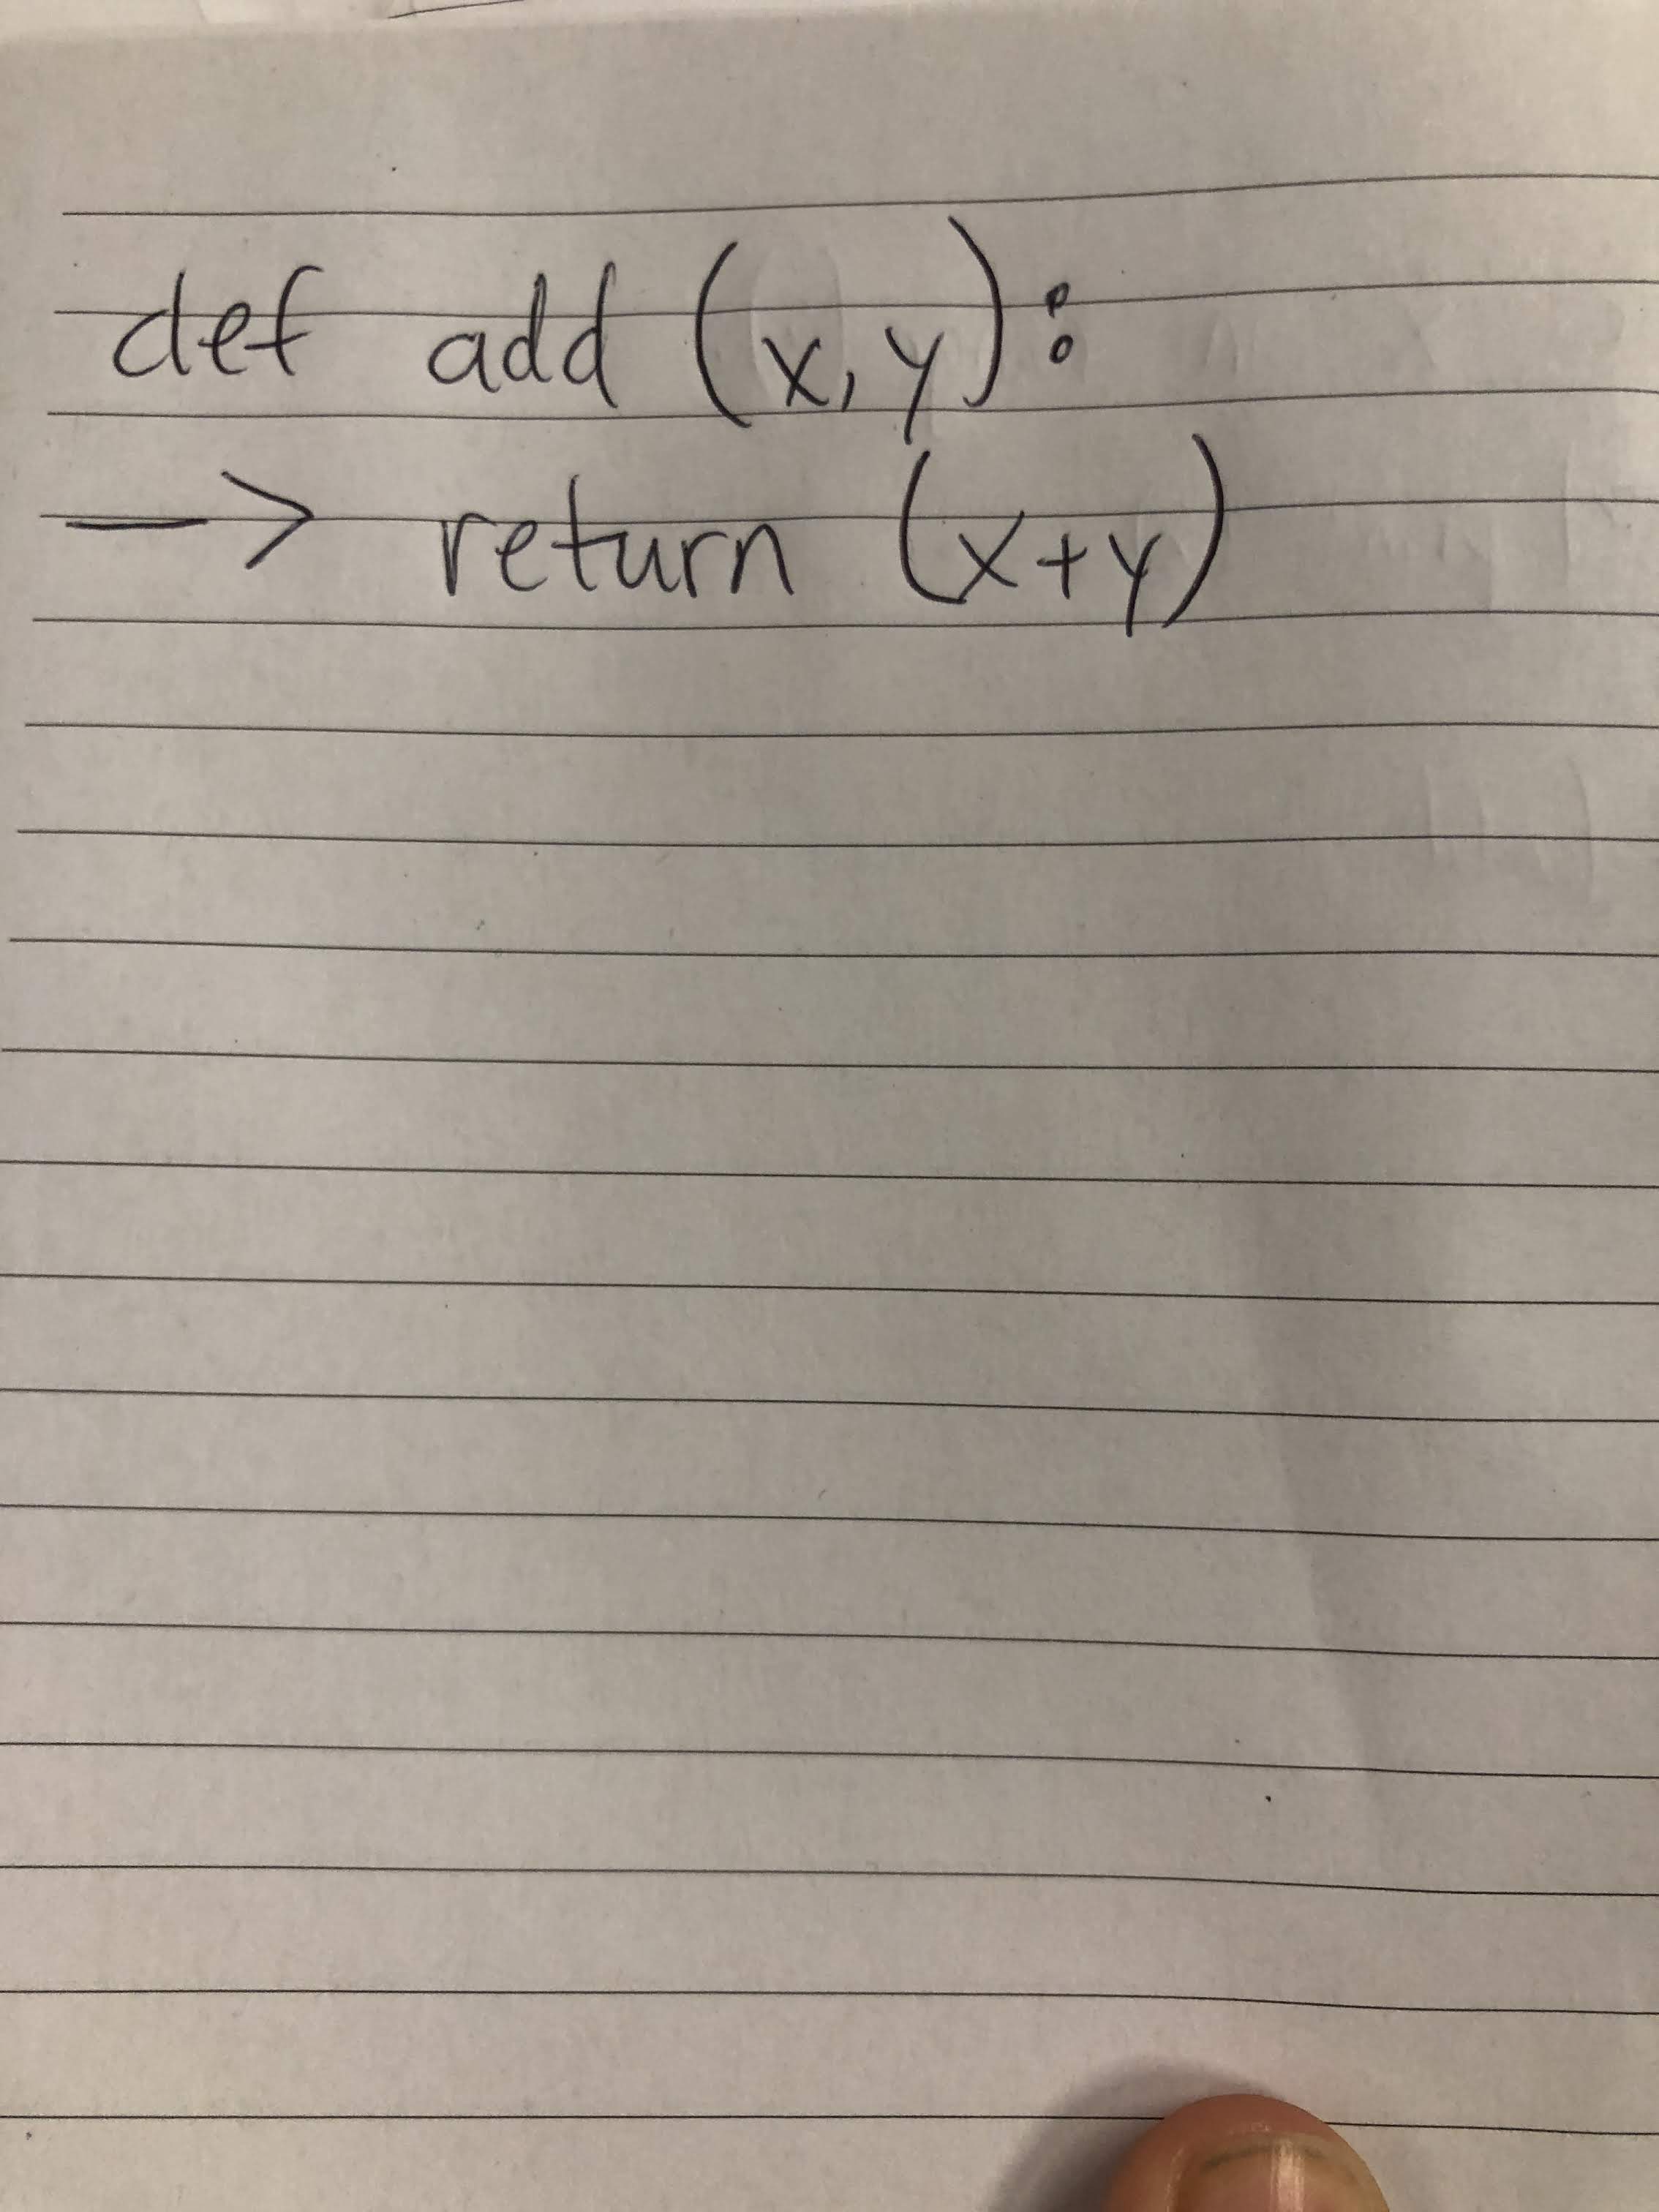 def add (x,y):
→ return (x+y)